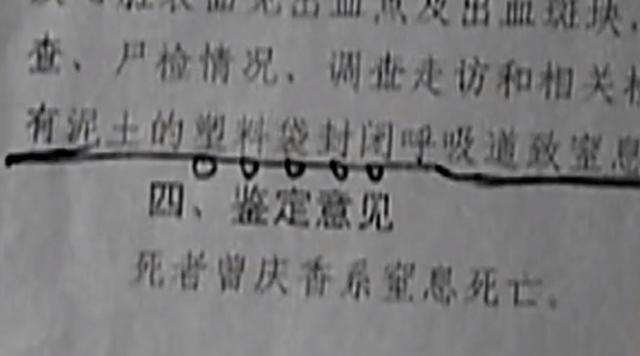 脏表面见出血点及出血斑块,
查、尸检情况、调查走访和相关
有泥土的塑料袋封闭呼吸道致窒息
四、鉴定意见
死者曾庆香系窒息死亡。